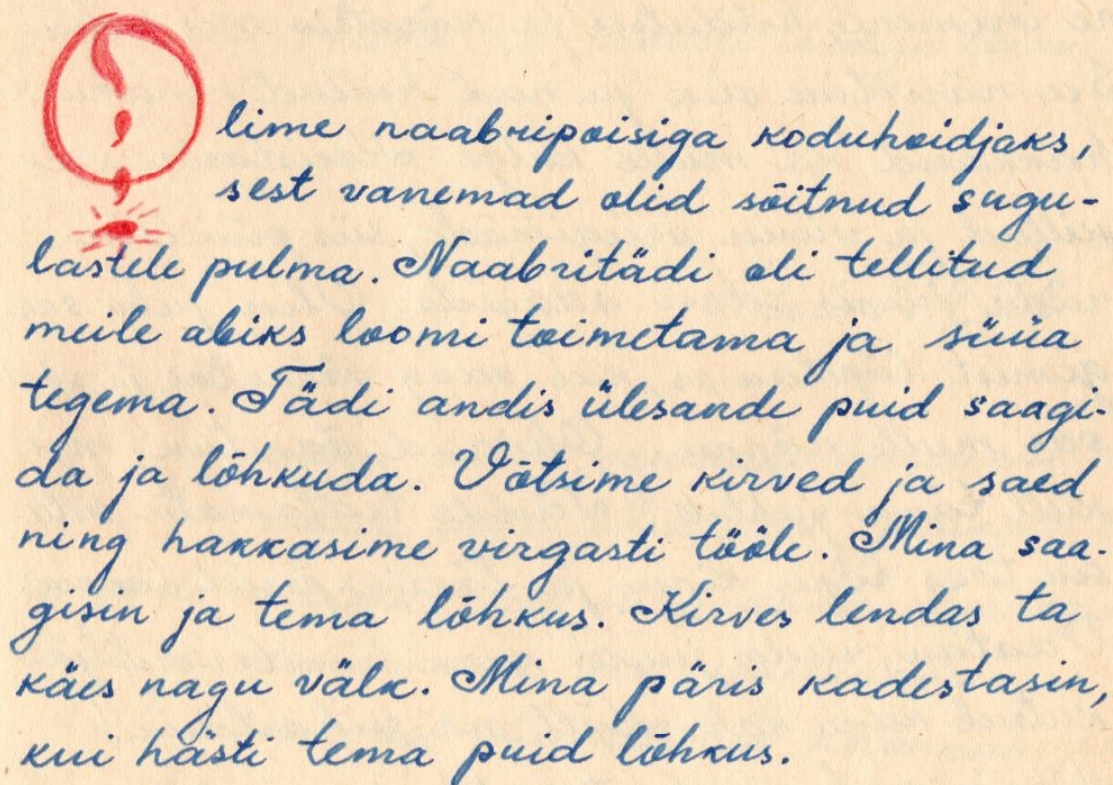 Olime naabripoisiga koduhoidjaks,
sest vanemad olid sõitnud sugu-
lastele pulma. Naabritädi oli tellitud
meile abiks loomi toimetama ja süüa
tegema. Tädi andis ülesande puid saagi-
da ja lõhkuda. Võtsime kirved ja saed
ning hakkasime virgasti tööle. Mina saa-
gisin ja tema lõhkus. Kirves lendas ta
käes nagu välk. Mina päris kadestasin,
kui hästi tema puid lõhkus.